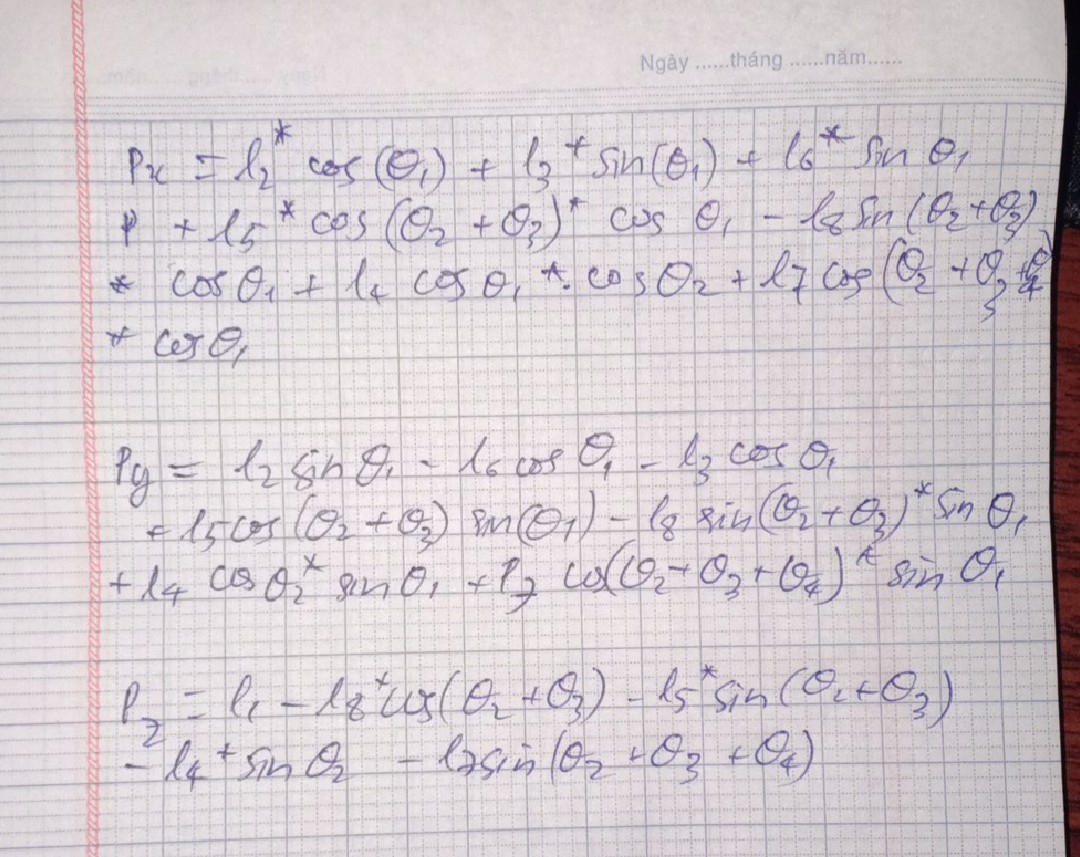 Ngày ......tháng ......năm......
Px = l2 * cos (θ1) + l3 * sin(θ1) + l6 * sin θ1
+ l5 * cos (θ2 + θ3) * cos θ1 - l8 sin (θ2 + θ3)
* cos θ1 + l4 cos θ1 * cos θ2 + l7 cos (θ2 + θ3 + θ4)
* cos θ1
Py = l2 sin θ1 - l6 cos θ1 - l3 cos θ1
+ l5 cos (θ2 + θ3) sin (θ1) - l8 sin (θ2 + θ3) * sin θ1
+ l4 cos θ2 * sin θ1 + l7 cos (θ2 + θ3 + θ4) * sin θ1
Pz = l1 - l8 * cos (θ2 + θ3) - l5 * sin (θ2 + θ3)
- l4 * sin θ2 - l7 sin (θ2 + θ3 + θ4)